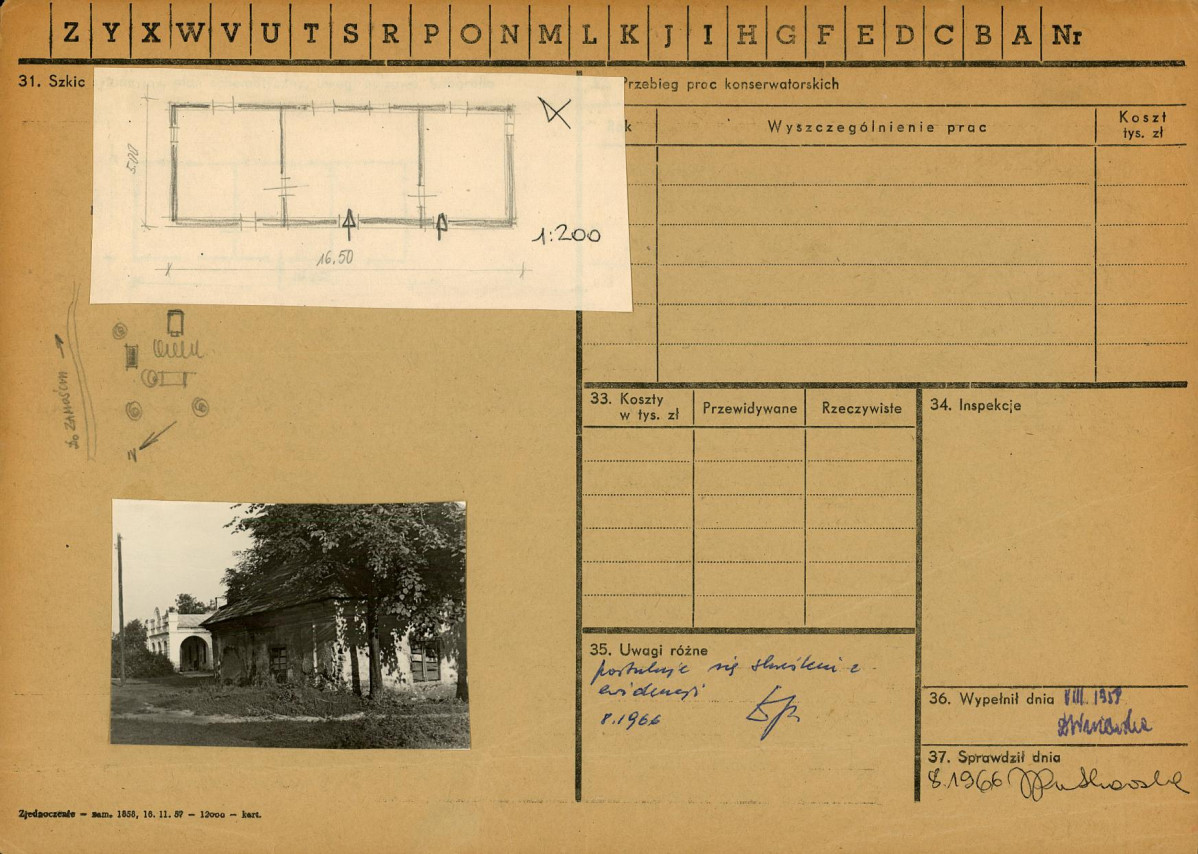 Z Y X W V U T S R P O N M L K J I H G F E D C B A Nr
31. Szkic
5.00
16.50
1:200
do ZAMOŚCIA
N
Przebieg prac konserwatorskich
k
Wyszczególnienie prac
Koszt
tys. zł
33. Koszty
w tys. zł
Przewidywane
Rzeczywiste
34. Inspekcje
35. Uwagi różne
postuluje się skreślenie z
ewidencji
8.1966
36. Wypełnił dnia VIII. 1958
37. Sprawdził dnia
8.1966
Zjednoczenie — zam. 1858, 16. 11. 57 — 12000 — kart.